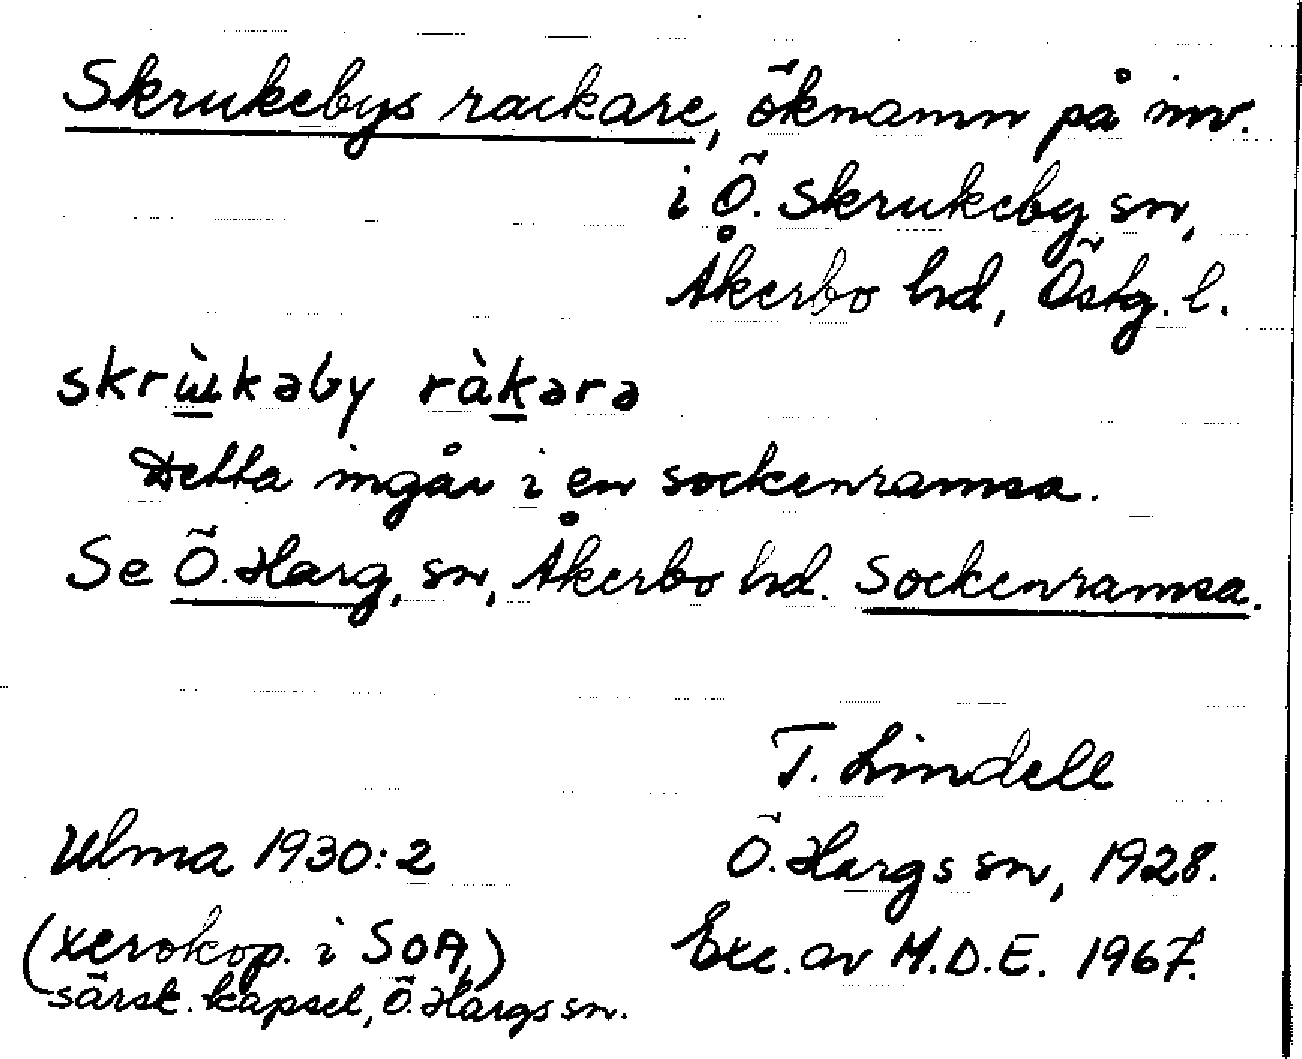 Skrukebys rackare, öknamn på inv.
i Ö. Skrukeby sn,
Åkerbo hd, Östg. l.
skrɯ̀kəby ràkarə
Detta ingår i en sockenramsa.
Se Ö. Harg, sn, Åkerbo hd. Sockenramsa.
T. Lindell
Ulma 1930:2
Ö. Hargs sn, 1928.
(xerokop. i SOA,)
Exc. av M.D.E. 1967.
särsk. kapsel, Ö. Hargs sn.